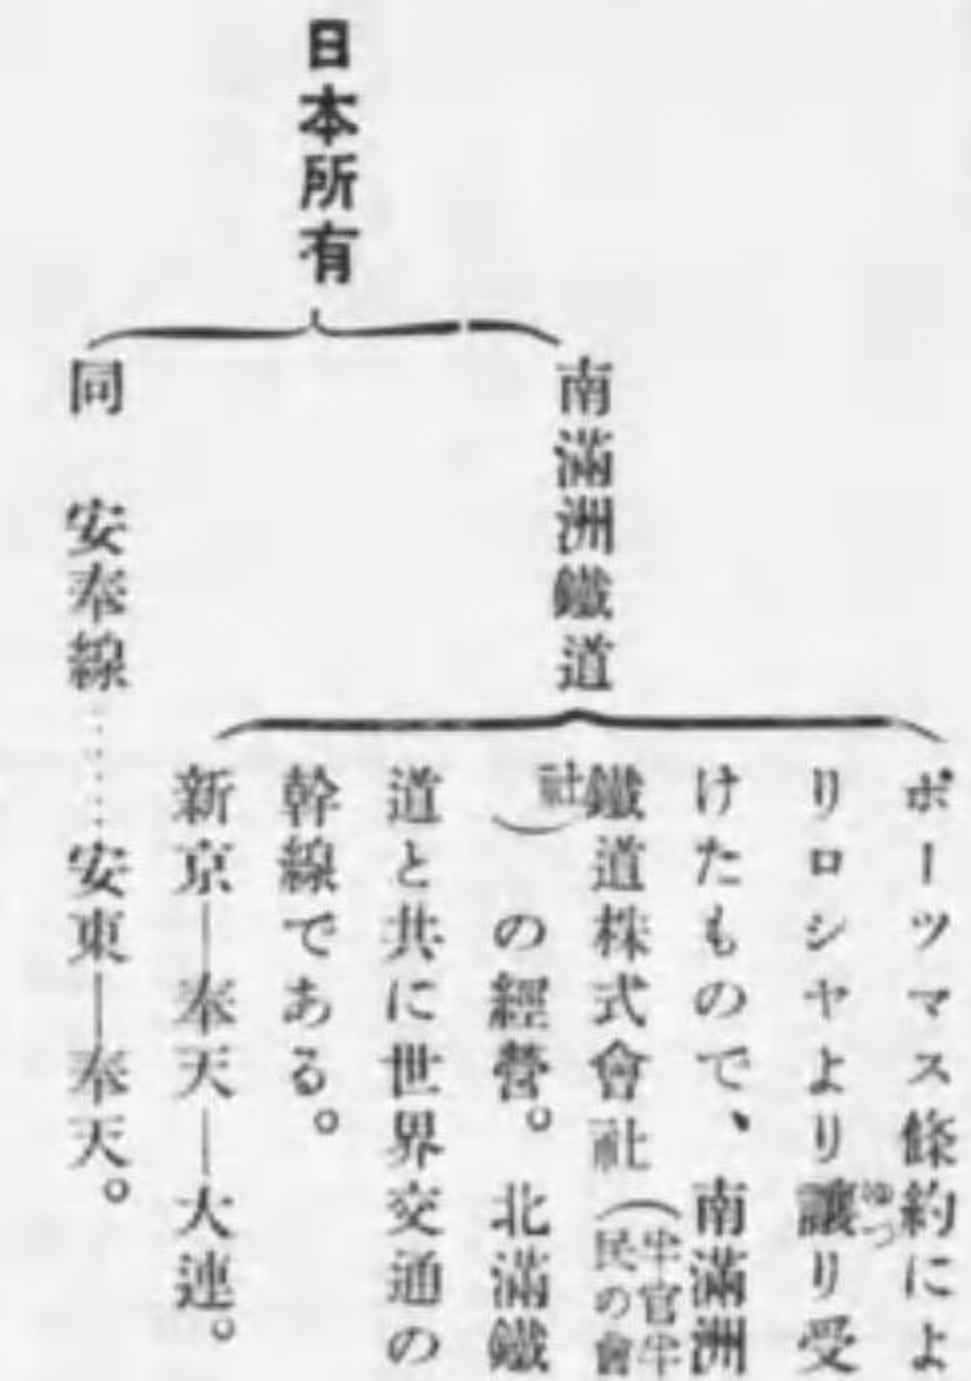 日本所有
南滿洲鐵道
ポーツマス條約によ
りロシヤより讓り受
ゆづ
けたもので、南滿洲
鐵道株式會社(半官半
民の會
社)の經營。北滿鐵
道と共に世界交通の
幹線である。
新京―奉天―大連。
同 安奉線……安東―奉天。